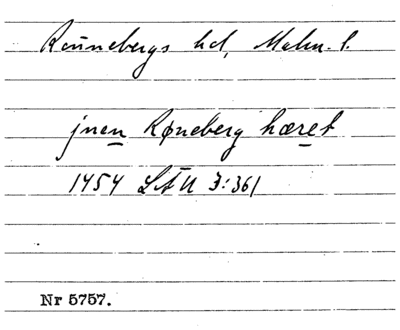 Rönnebergs hd, Malm. l.
jnen Røneberg hæret
1454 LÄU 3:361
Nr 5757.